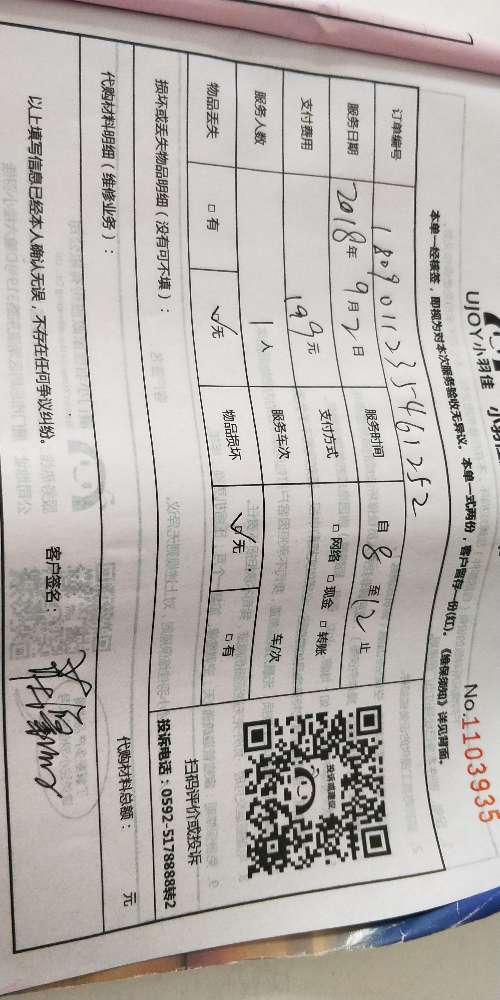 UJOY小羽佳
No.1103935
本单一经核签，即视为对本次服务验收无异议。本单一式两份，客户留存一份(红)。《维保须知》详见背面。
订单编号 18090112335461252
服务日期 2018年9月2日 服务时间 自8至12止
支付费用 199元 支付方式 □网络 □现金 □转账
服务人数 1人 服务车次 车/次
物品丢失 □有 ☑无 物品损坏 ☑无 □有
投诉或建议
扫码评价或投诉
投诉电话：0592-5178888转2
损坏或丢失物品明细（没有可不填）：
代购材料明细（维修业务）：
代购材料总额： 元
以上填写信息已经本人确认无误，不存在任何争议纠纷。 客户签名：